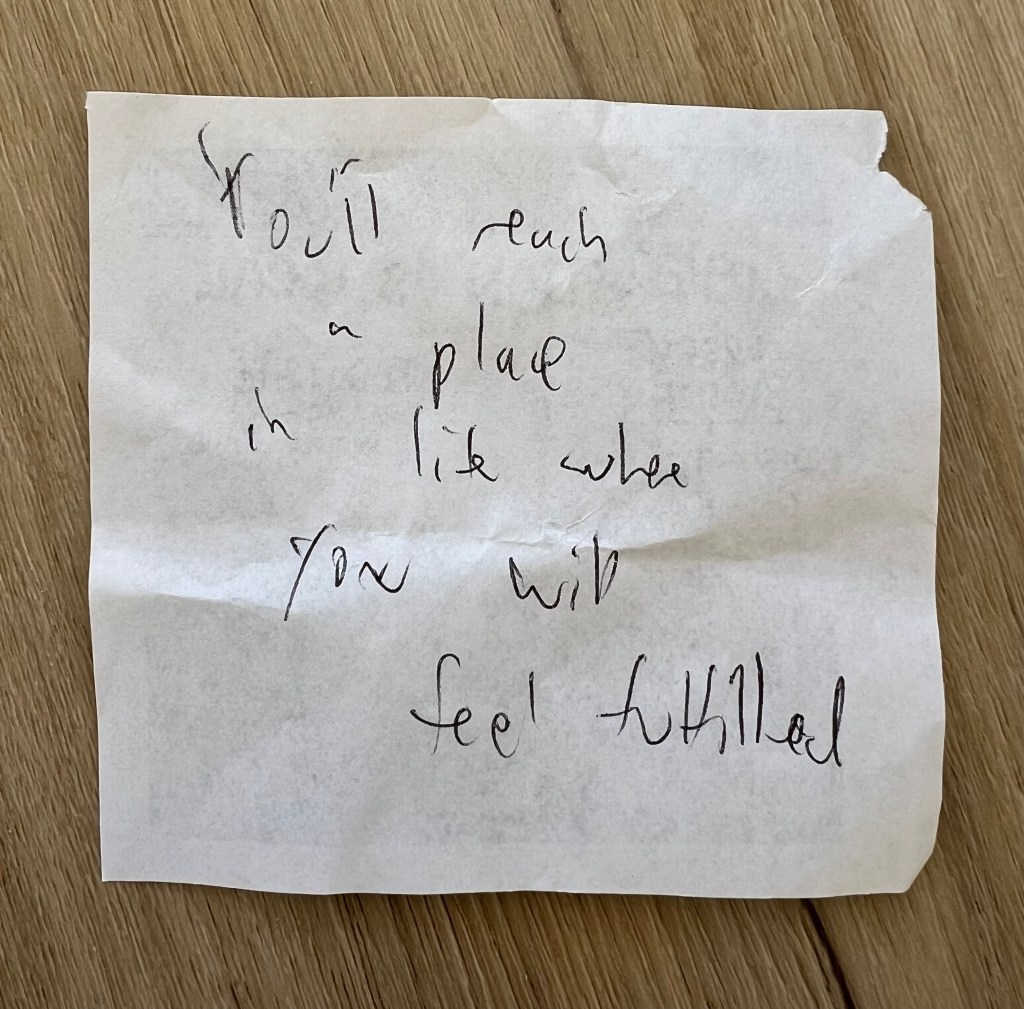 You'll reach
a place
in life where
you will
feel fulfilled